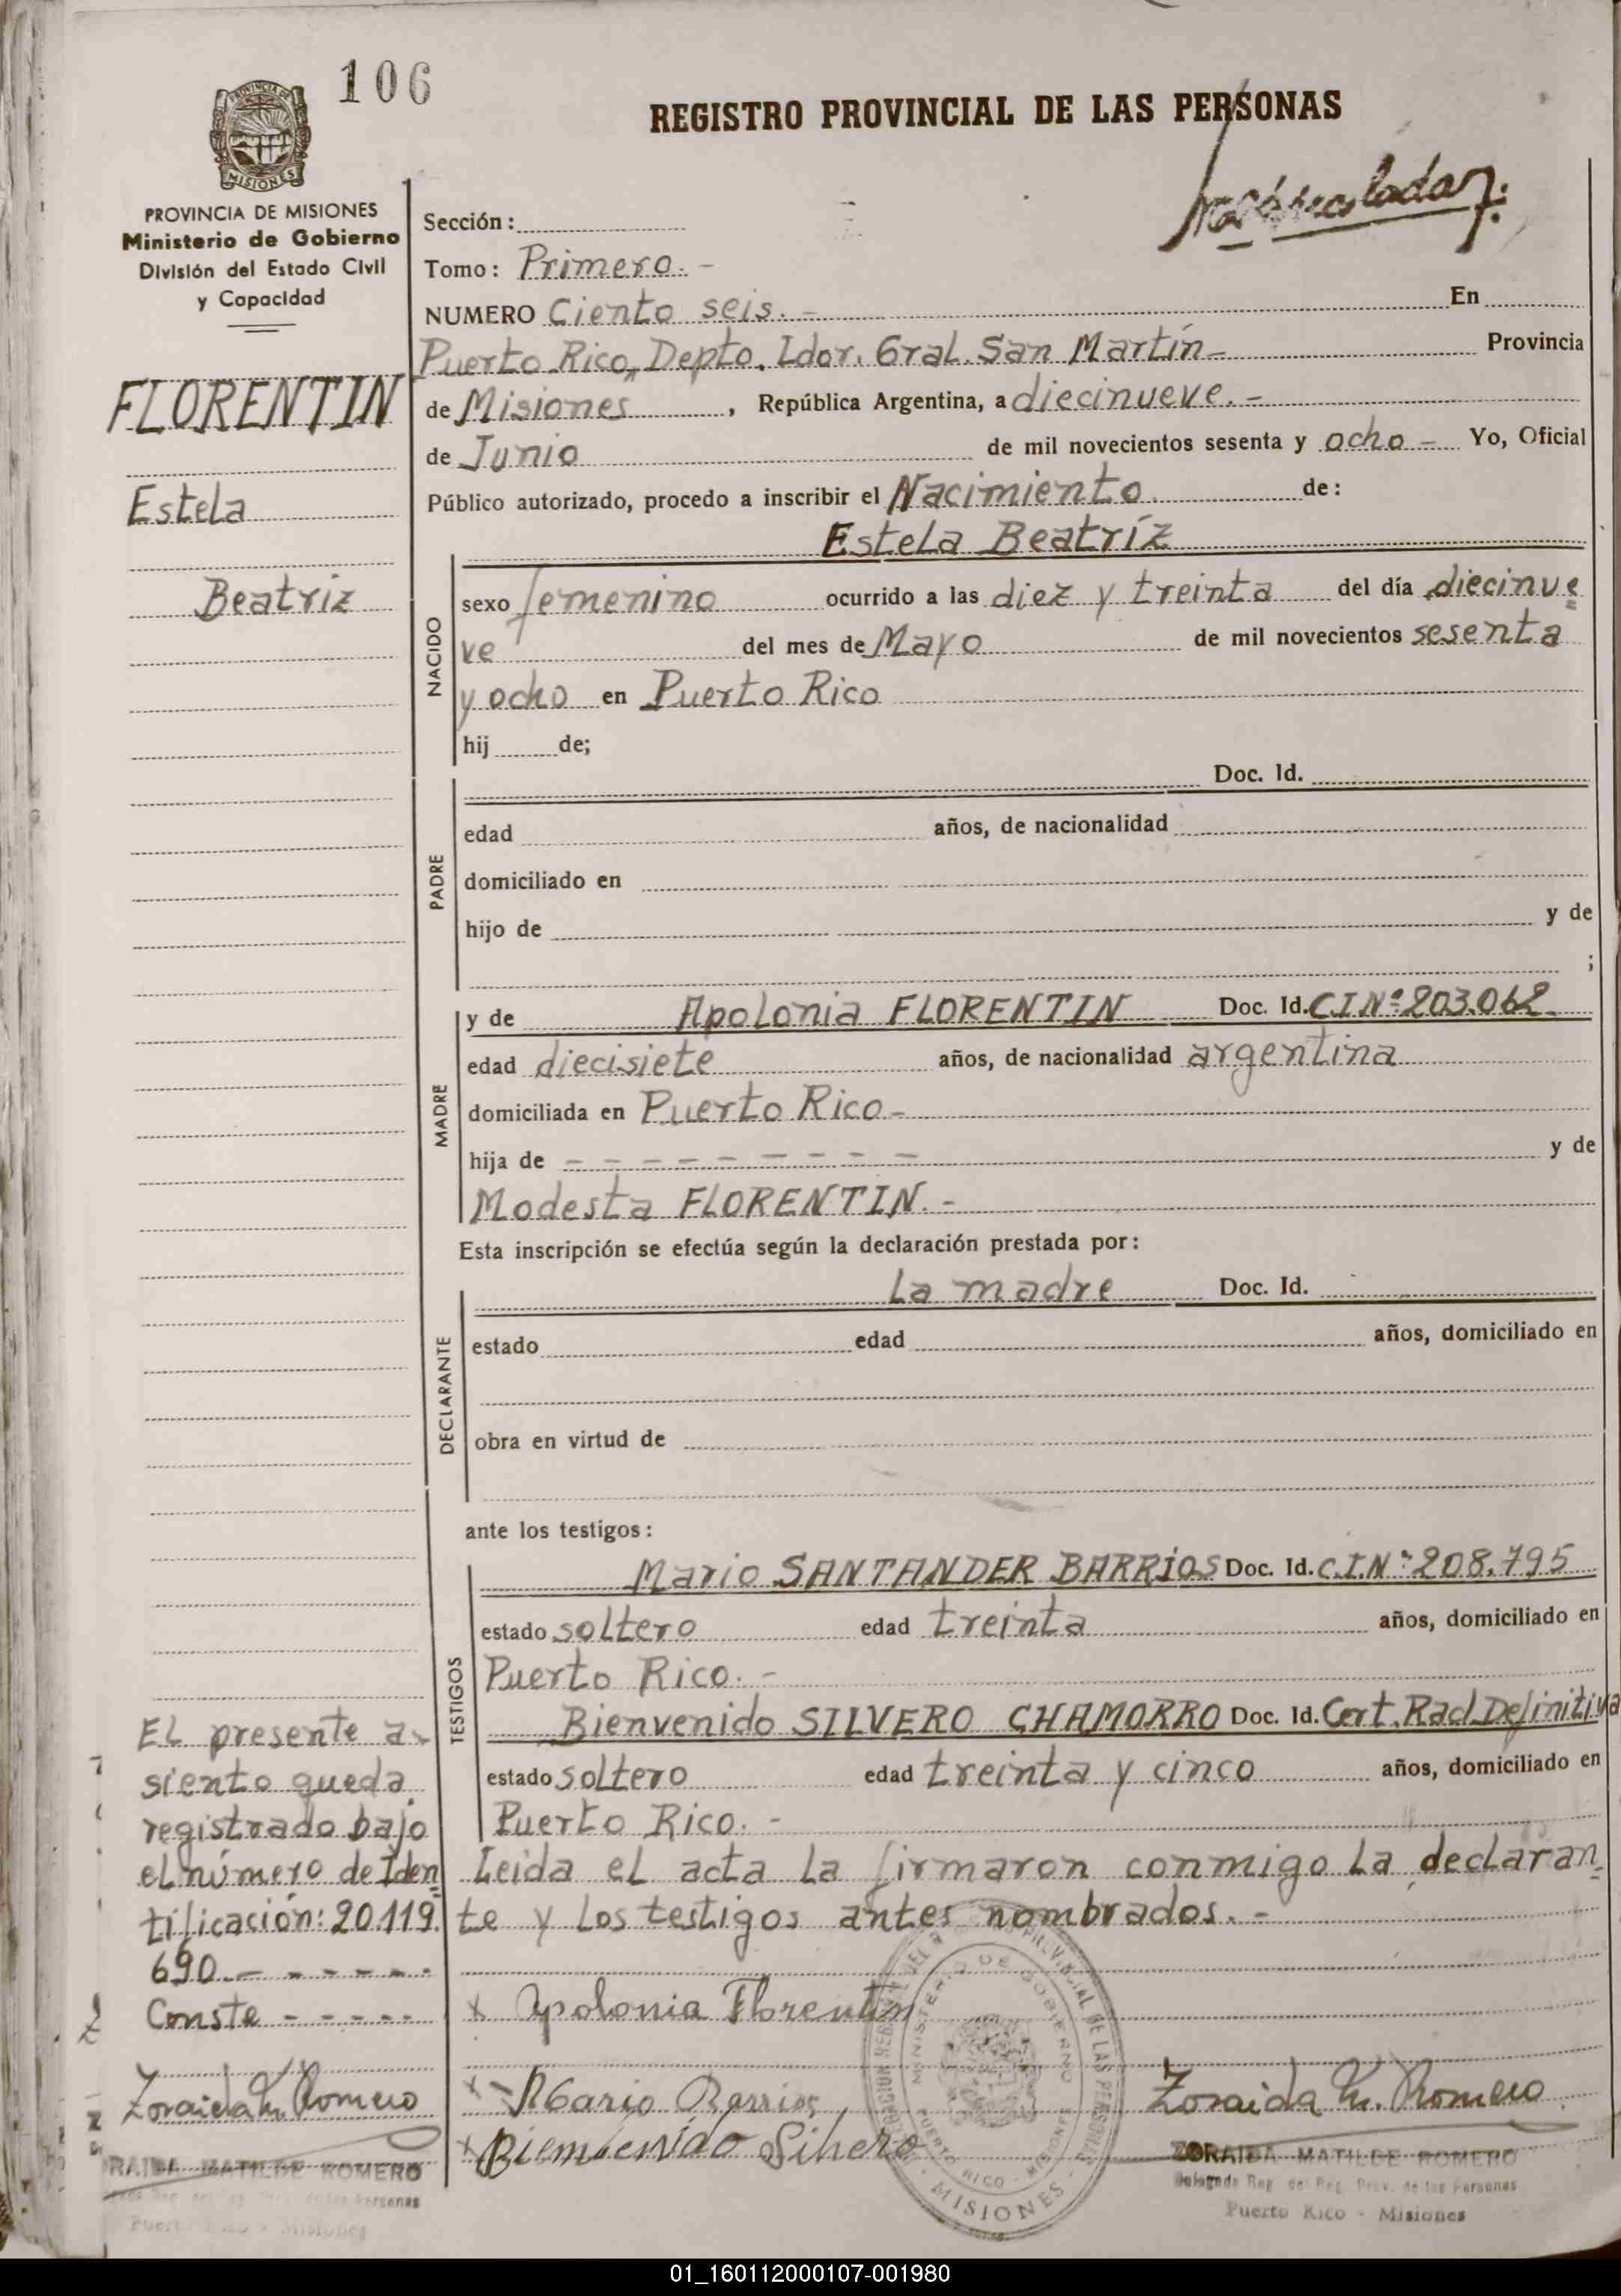 106
REGISTRO PROVINCIAL DE LAS PERSONAS
PROVINCIA DE MISIONES
Ministerio de Gobierno
División del Estado Civil
y Capacidad
FLORENTIN
Estela
Beatriz
Sección:
Tomo: Primero. -
NUMERO Ciento seis. - En
Puerto Rico, Depto. Ldor. Gral. San Martín - Provincia
de Misiones, República Argentina, a diecinueve. -
de Junio de mil novecientos sesenta y ocho - Yo, Oficial
Público autorizado, procedo a inscribir el Nacimiento de:
Estela Beatríz
NACIDO
sexo femenino ocurrido a las diez y treinta del día diecinue=
ve del mes de Mayo de mil novecientos sesenta
y ocho en Puerto Rico
hij de;
PADRE
Doc. Id.
edad años, de nacionalidad
domiciliado en
hijo de y de
;
MADRE
y de Apolonia FLORENTIN Doc. Id. C.I.Nº 203.062.
edad diecisiete años, de nacionalidad argentina
domiciliada en Puerto Rico -
hija de - - - - - - - - - y de
Modesta FLORENTIN. -
Esta inscripción se efectúa según la declaración prestada por:
DECLARANTE
La madre Doc. Id.
estado edad años, domiciliado en
obra en virtud de
ante los testigos:
TESTIGOS
Mario SANTANDER BARRIOS Doc. Id. C.I.Nº 208.795
estado soltero edad treinta años, domiciliado en
Puerto Rico. -
Bienvenido SILVERO CHAMORRO Doc. Id. Cert. Rad. Definitiva
estado soltero edad treinta y cinco años, domiciliado en
Puerto Rico. -
Leida el acta la firmaron conmigo la declaran=
te y los testigos antes nombrados. -
Apolonia Florentin
Mario Barrios
Bienvenido Silvero
Zoraida M. Romero
ZORAIDA MATILDE ROMERO
Delegada Reg. del Reg. Prov. de las Personas
Puerto Rico - Misiones
MINISTERIO DE GOBIERNO
PUERTO RICO - MISIONES
MISIONES
El presente a-
siento queda
registrado bajo
el número de Iden=
tificación: 20.119.
690 - - - - - -
Conste - - - - -
Zoraida M. Romero
RAIDA MATILDE ROMERO
Puerto Rico - Misiones
01_160112000107-001980